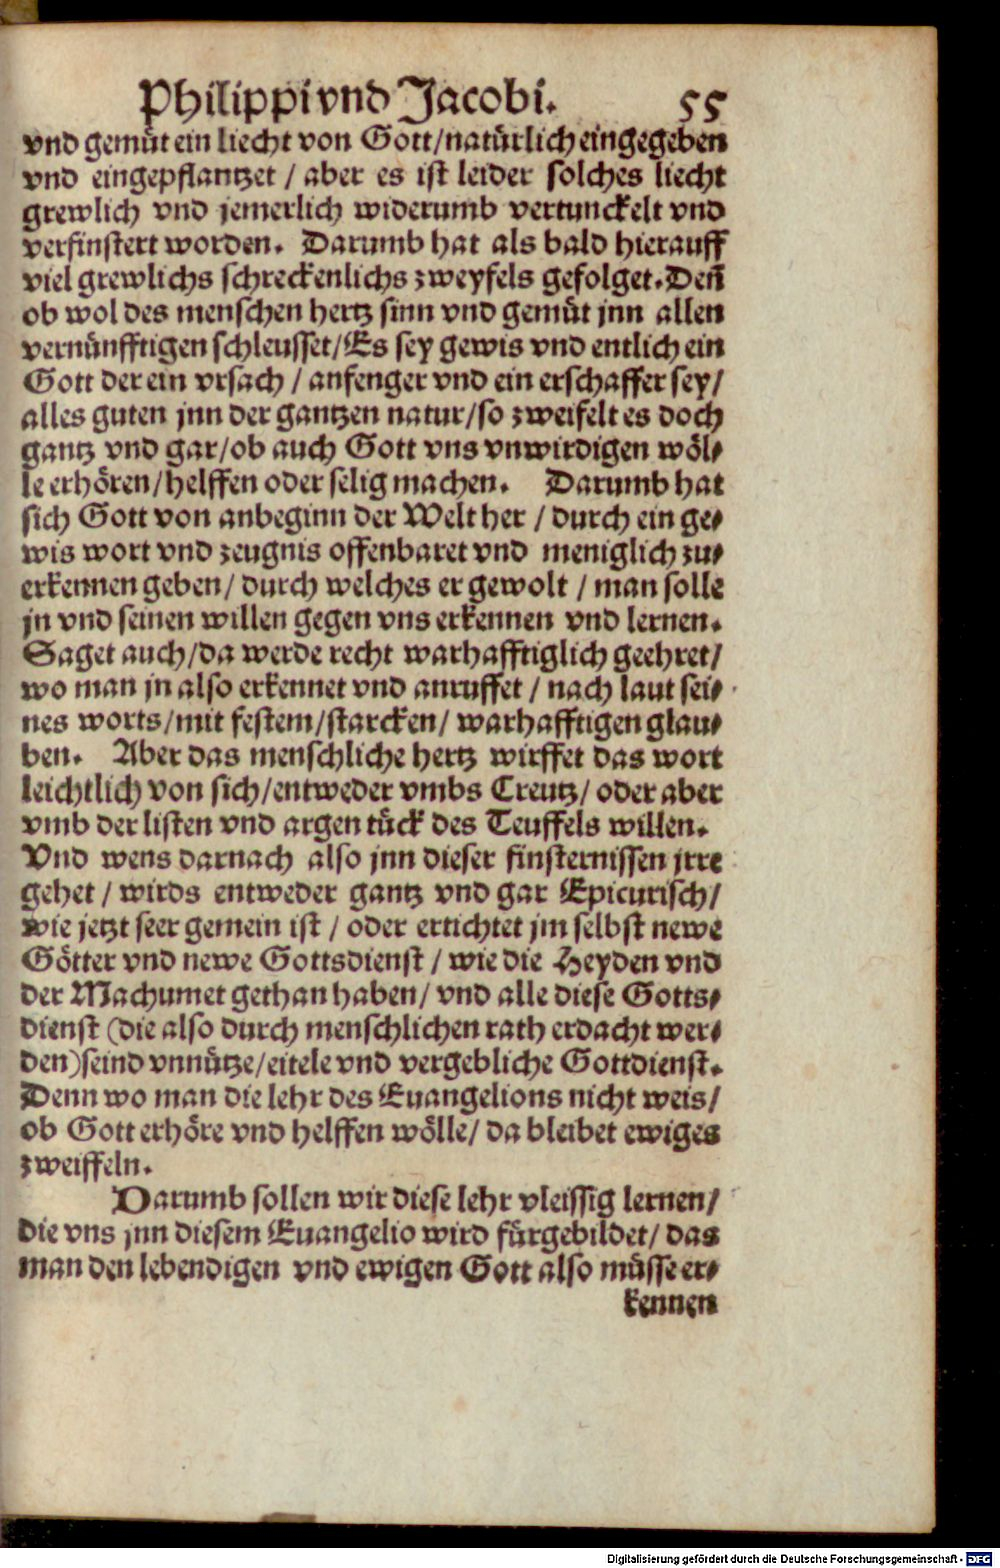 Philippi vnd Jacobi. 55
vnd gemüt ein liecht von Gott/natürlich eingegeben
vnd eingepflantzet / aber es ist leider solches liecht
grewlich vnd jemerlich widerumb vertunckelt vnd
verfinstert worden. Darumb hat als bald hierauff
viel grewlichs schrecke̅nlichs zweyfels gefolget. Den̅
ob wol des menschen hertz sinn vnd gemüt jnn allen
vernünfftigen schleusset/Es sey gewis vnd entlich ein
Gott der ein vrsach / anfenger vnd ein erschaffer sey/
alles guten jnn der gantzen natur/so zweifelt es doch
gantz vnd gar/ob auch Gott vns vnwirdigen wöl⸗
le erhören/helffen oder selig machen. Darumb hat
sich Gott von anbeginn der Welt her / durch ein ge⸗
wis wort vnd zeugnis offenbaret vnd meniglich zu⸗
erkennen geben/ durch welches er gewolt / man solle
jn vnd seinen willen gegen vns erkennen vnd lernen.
Saget auch/da werde recht warhafftiglich geehret/
wo man jn also erkennet vnd anruffet / nach laut sei⸗
nes worts/mit festem/starcken/ warhafftigen glau⸗
ben. Aber das menschliche hertz wirffet das wort
leichtlich von sich/entweder vmbs Creutz/ oder aber
vmb der listen vnd argen tück des Teuffels willen.
Vnd wens darnach also jnn dieser finsternissen jrre
gehet / wirds entweder gantz vnd gar Epicurisch/
wie jetzt seer gemein ist / oder ertichtet jm selbst newe
Götter vnd newe Gottsdienst / wie die Heyden vnd
der Machumet gethan haben/ vnd alle diese Gotts⸗
dienst (die also durch menschlichen rath erdacht wer⸗
den)seind vnnütze/eitele vnd vergebliche Gottdienst.
Denn wo man die lehr des Euangelions nicht weis/
ob Gott erhöre vnd helffen wölle/ da bleibet ewiges
zweiffeln.
Darumb sollen wir diese lehr vleissig lernen/
die vns jnn diesem Euangelio wird fürgebildet/ das
man den lebendigen vnd ewigen Gott also müsse er⸗
kennen
Digitalisierung gefördert durch die Deutsche Forschungsgemeinschaft - DFG